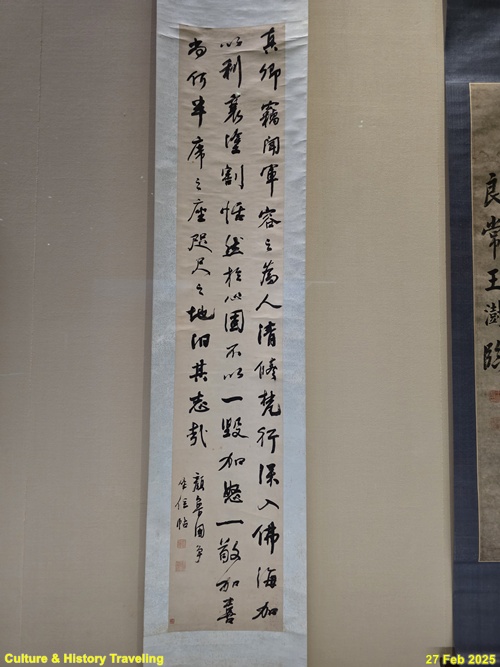 真卿竊聞軍容之為人清脩梵行深入佛海加
以利衰塗割恬然於心固不以一毀加怒一敬加喜
尚何半席之座咫尺之地汩其志哉
顏魯国争
坐位帖
良常王澍臨
Culture & History Traveling
27 Feb 2025